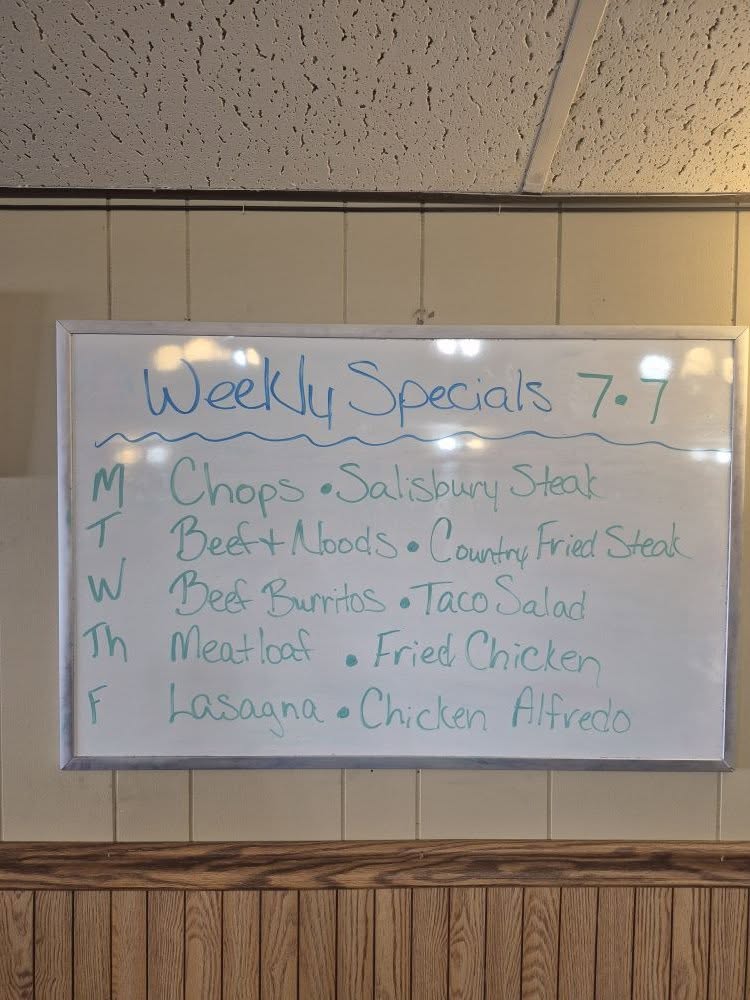 Weekly Specials 7.7
M Chops • Salisbury Steak
T Beef + Noods • Country Fried Steak
W Beef Burritos • Taco Salad
Th Meatloaf • Fried Chicken
F Lasagna • Chicken Alfredo